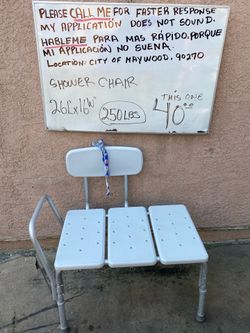 PLEASE CALL ME FOR FASTER RESPONSE
MY APPLICATION DOES NOT SOUND.
HABLEME PARA MAS RÁPIDO, PORQUE
MI APPLICACIÓN NO SUENA.
LOCATION: CITY OF MAYWOOD. 90270
SHOWER CHAIR
26L X 16W
250LBS
THIS ONE
40.00